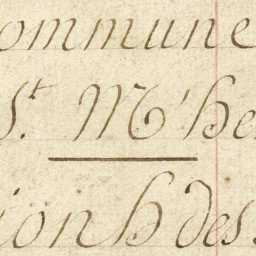 ommune
St. M'he
ion h des